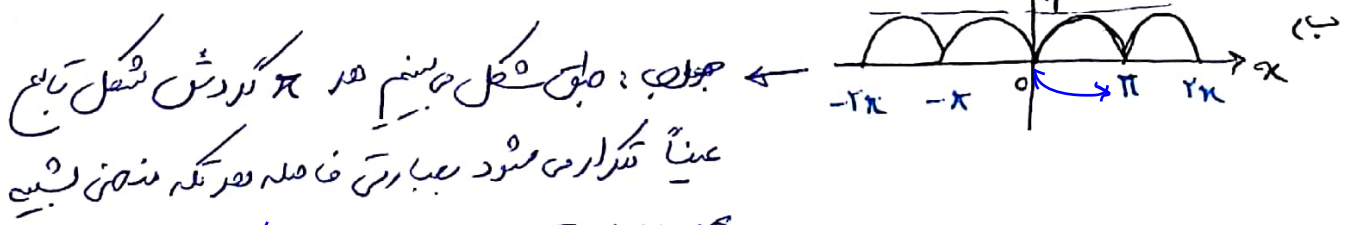 ب)
۱
-۲π -π 0 π ۲π x
جواب: طبق شکل می بینیم هر π گردش شکل تابع
عیناً تکرار می شود بعبارتی فاصله هر تکه منحنی شبیه